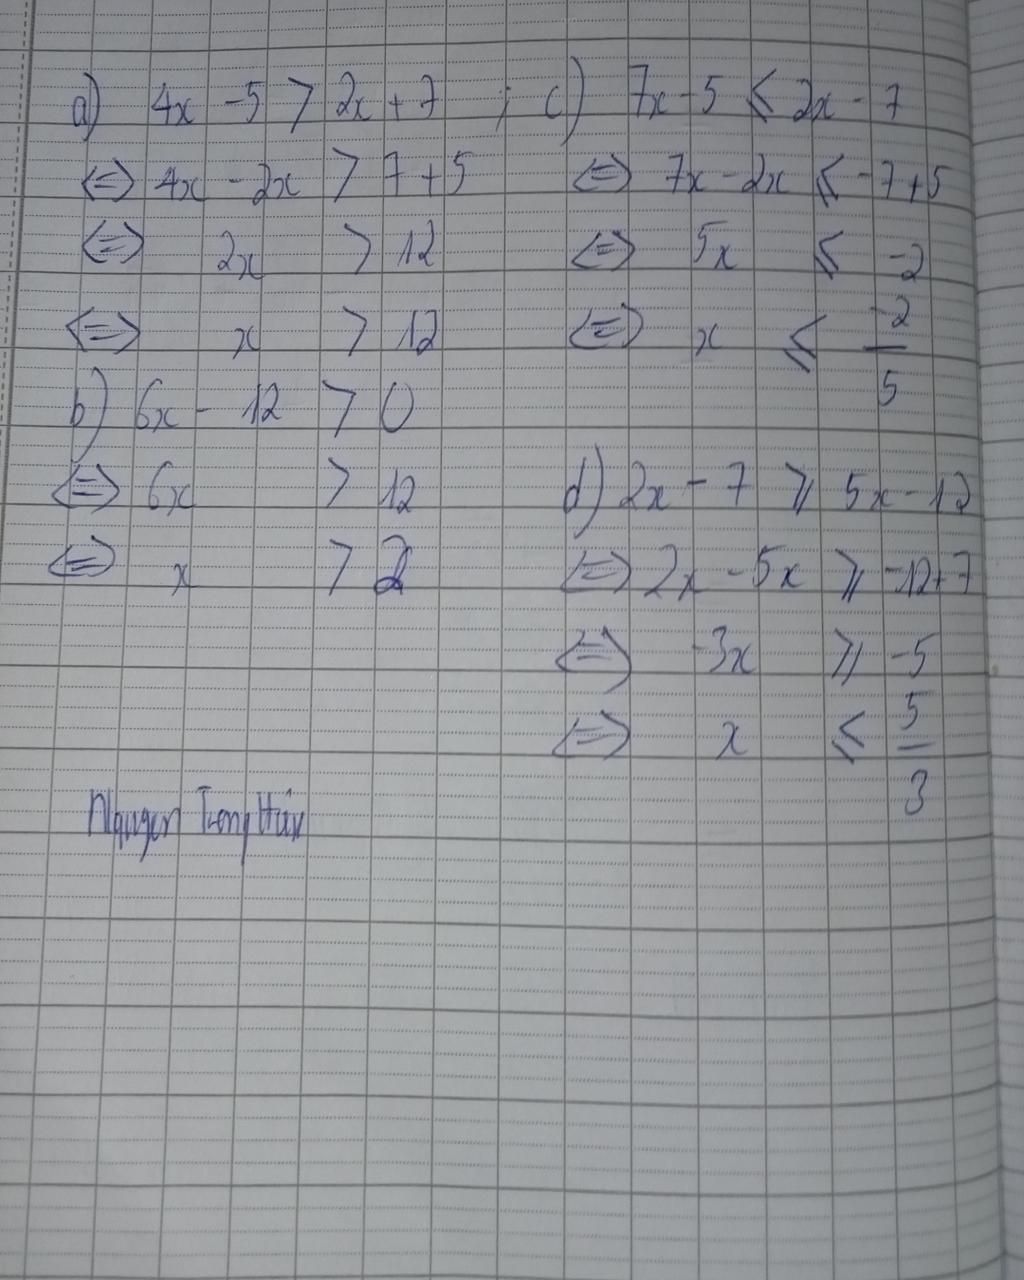 a) 4x - 5 > 2x + 7 ;
⇔ 4x - 2x > 7 + 5
⇔ 2x > 12
⇔ x > 12
b) 6x - 12 > 0
⇔ 6x > 12
⇔ x > 2
c) 7x - 5 ⩽ 2x - 7
⇔ 7x - 2x ⩽ -7 + 5
⇔ 5x ⩽ -2
⇔ x ⩽ -2/5
d) 2x - 7 ⩾ 5x - 12
⇔ 2x - 5x ⩾ -12 + 7
⇔ -3x ⩾ -5
⇔ x ⩽ 5/3
Nguyen